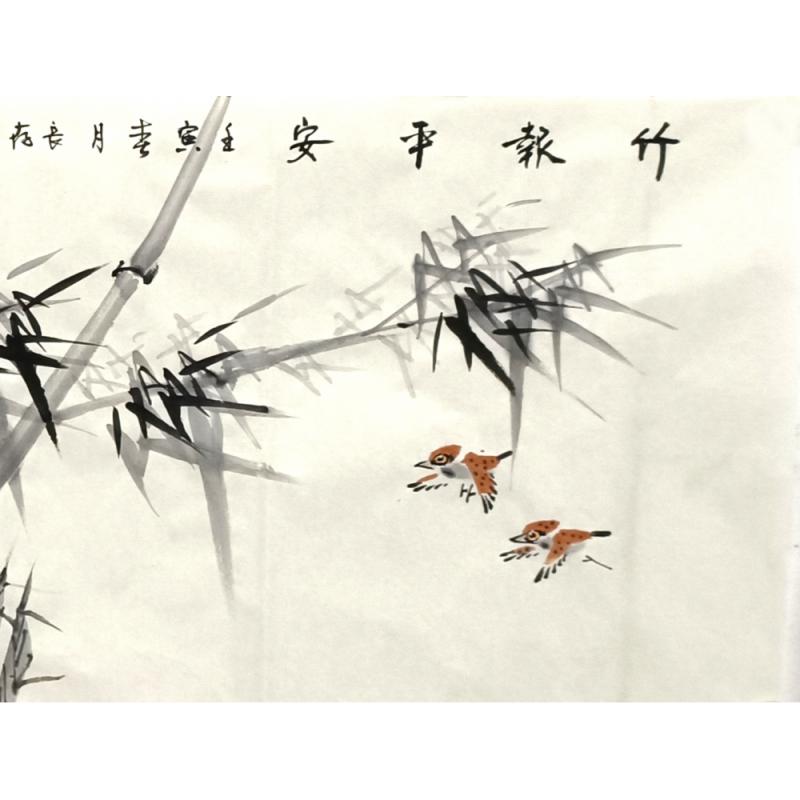 竹報平安壬寅春月長存